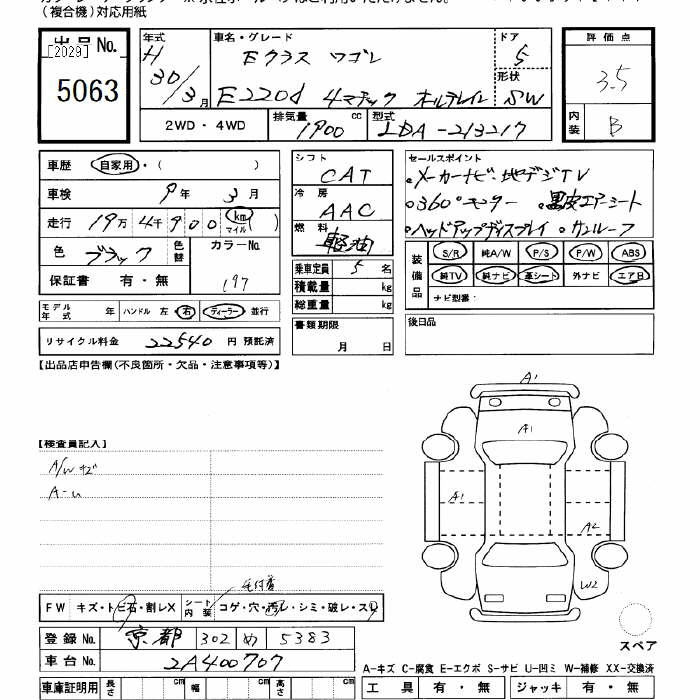 (複合機)対応用紙
出品No.
[2029]
5063
年式
H
30/3月
車名・グレード
Eクラス ワゴン
E220d 4マチック オールテレイン
ドア
5
形状
SW
評価点
3.5
内装
B
2WD・4WD
排気量
1900 cc
型式
LDA-213217
車歴 自家用・( )
車検 9年 3月
走行 19万4千900 km マイル
色 ブラック
色替
カラーNo.
197
保証書 有・無
シフト
CAT
冷房
AAC
燃料
軽油
乗車定員 5 名
積載量 kg
総重量 kg
セールスポイント
・メーカーナビ・地デジTV
・360°モニター ・黒皮エアーシート
・ヘッドアップディスプレイ ・サンルーフ
装備品
S/R 純A/W P/S P/W ABS
純TV 純ナビ 革シート 外ナビ エアB
ナビ型番:
モデル年式 年 ハンドル 左・右 ディーラー・並行
リサイクル料金 22540 円 預託済
書類期限
月 日
後日品
【出品店申告欄(不良箇所・欠品・注意事項等)】
【検査員記入】
A/Wキズ
A-u
A1
A1
A1
A2
W2
FW キズ・トビ石・割レX
シート内装 コゲ・穴・汚レ・シミ・破レ・スレ
登録No. 京都 302 め 5383
車台No. 2A400707
スペア
A-キズ C-腐食 E-エクボ S-サビ U-凹ミ W-補修 XX-交換済
車庫証明用 長さ cm 幅 cm 高さ cm
工具 有・無 ジャッキ 有・無